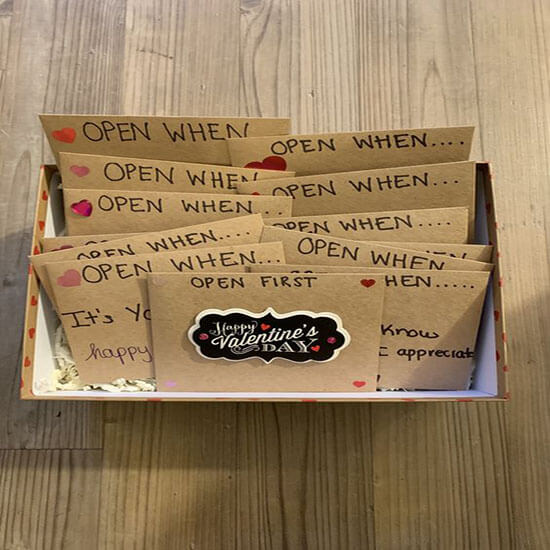 OPEN WHEN
OPEN WHEN....
OPEN WHEN...
OPEN WHEN...
OPEN WHEN...
OPEN WHEN....
OPEN WHEN....
OPEN WHEN
OPEN WHEN...
OPEN FIRST
HEN.....
It's
happy
Happy
Valentine's
DAY
Know
I appreciate